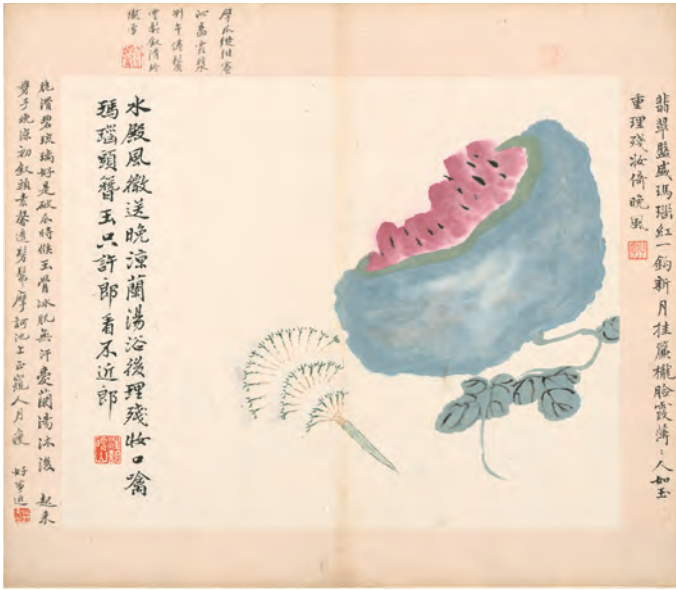 翡翠盤盛瑪瑙紅一鉤新月挂簾櫳臉霞薄〻人如玉
重理殘妝倚晚風
沁齒霞漿
水殿風微送晚涼蘭湯浴後理殘妝口噙
瑪瑙頭簪玉只許郎看不近郎
脆滑碧琉璃好是破瓜時候玉骨冰肌無汗愛蘭湯沐後 起來
晚涼初釵頭素馨透摩訶池上正窺人月瘦 好事近